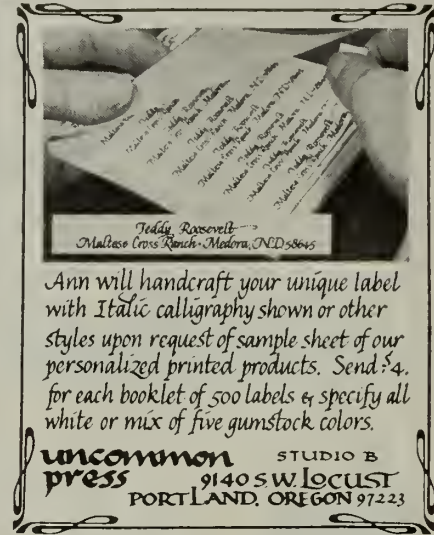 Teddy Roosevelt
Maltese Cross Ranch · Medora, N.D. 58645
Ann will handcraft your unique label
with Italic calligraphy shown or other
styles upon request of sample sheet of our
personalized printed products. Send $4.
for each booklet of 500 labels & specify all
white or mix of five gumstock colors.
uncommon
press
STUDIO B
9140 S.W. LOCUST
PORTLAND, OREGON 97223